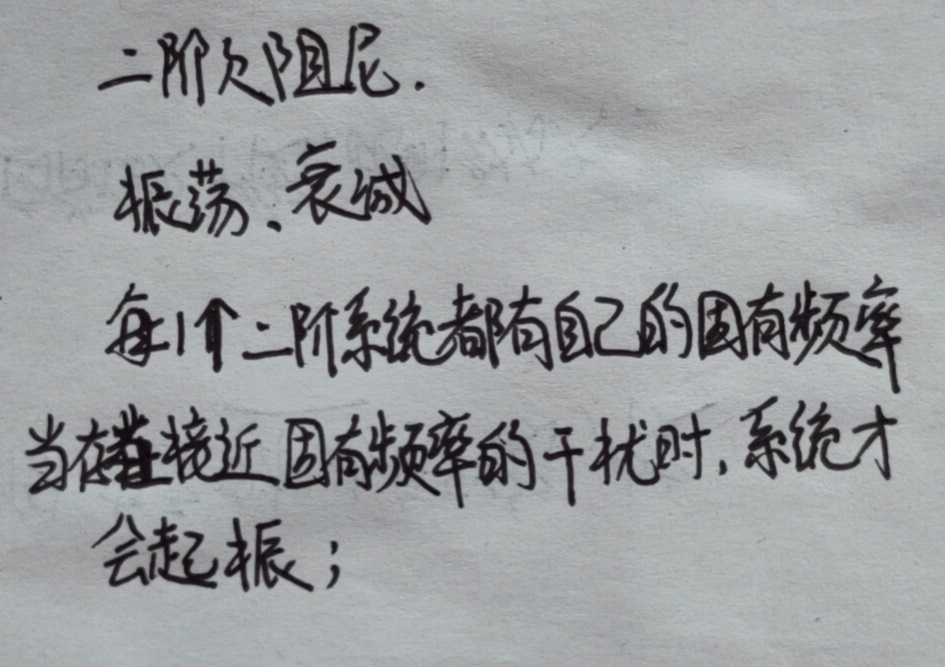 二阶欠阻尼.
振荡、衰减
每1个二阶系统都有自己的固有频率
当存在接近固有频率的干扰时,系统才
会起振;